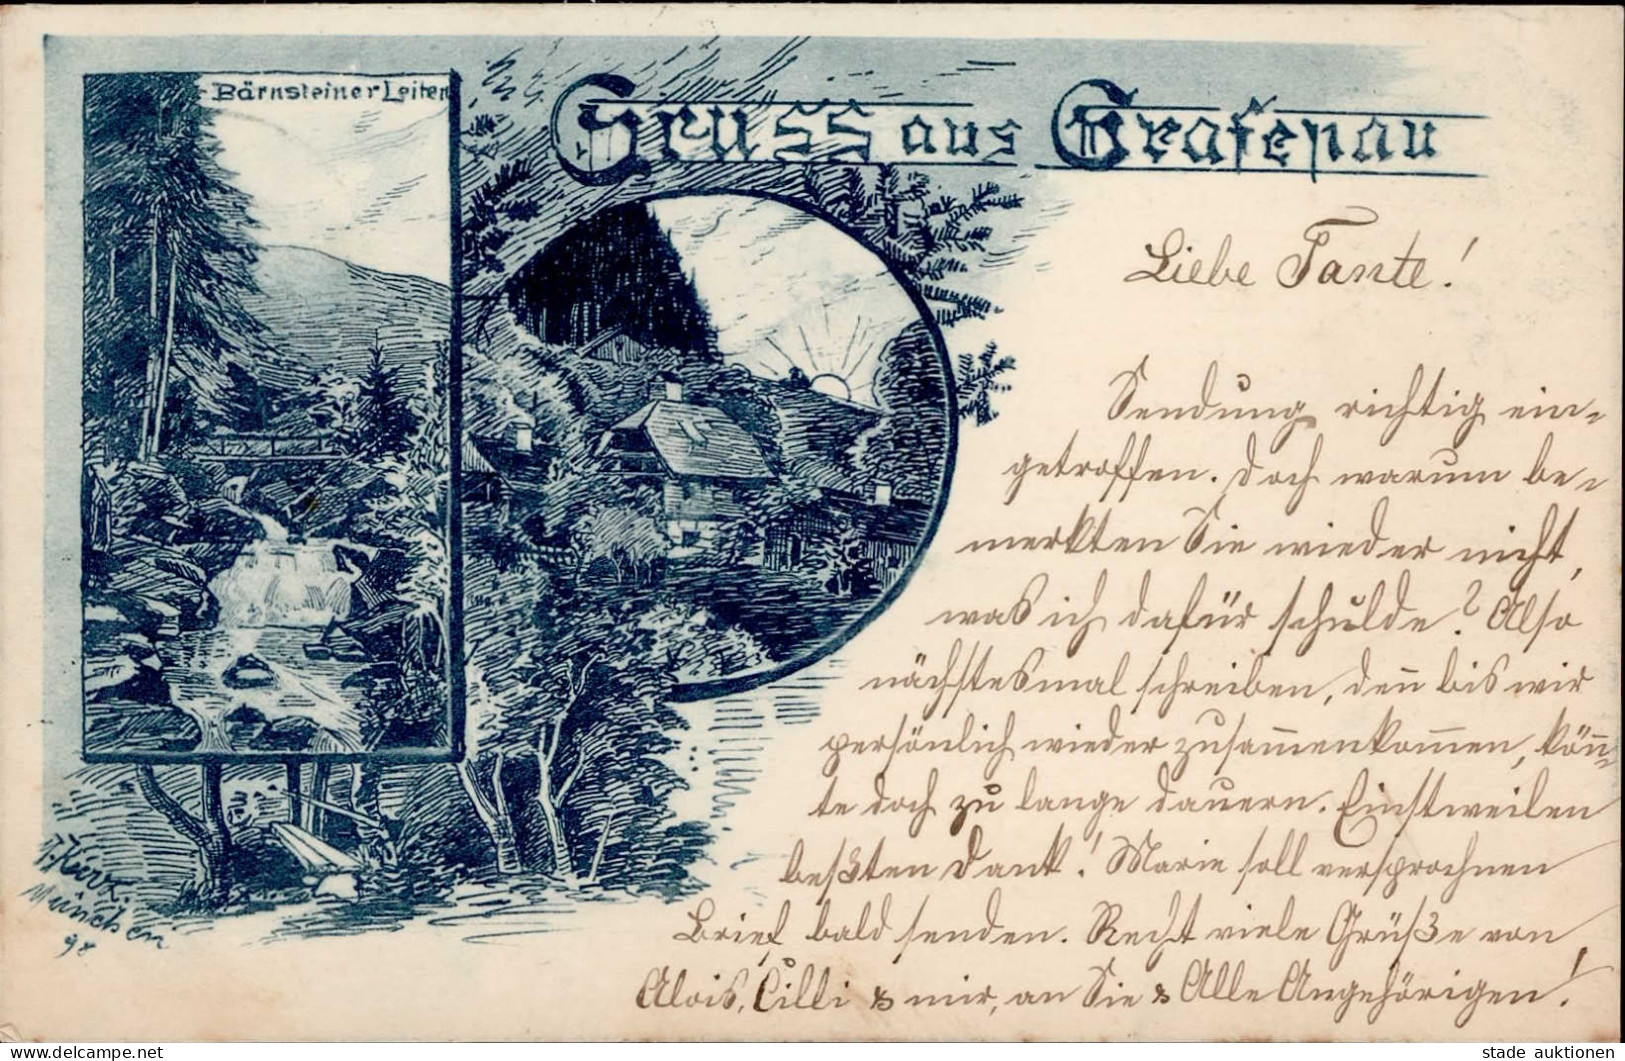 Bärnsteiner Leiten
Gruss aus Grafenau
Liebe Tante!
Sendung richtig ein-
getroffen. Doch warum be-
merkten Sie wieder nicht,
was ich dafür schulde? Also
nächstesmal schreiben, den̅ bis wir
persönlich wieder zusam̅enkom̅en, kön̅-
te doch zu lange dauern. Einstweilen
besten Dank! Marie soll versprochnen
Brief bald senden. Recht viele Grüße von
Alois, Cilli & mir, an Sie & Alle Angehörigen!
München
98
stade auktionen